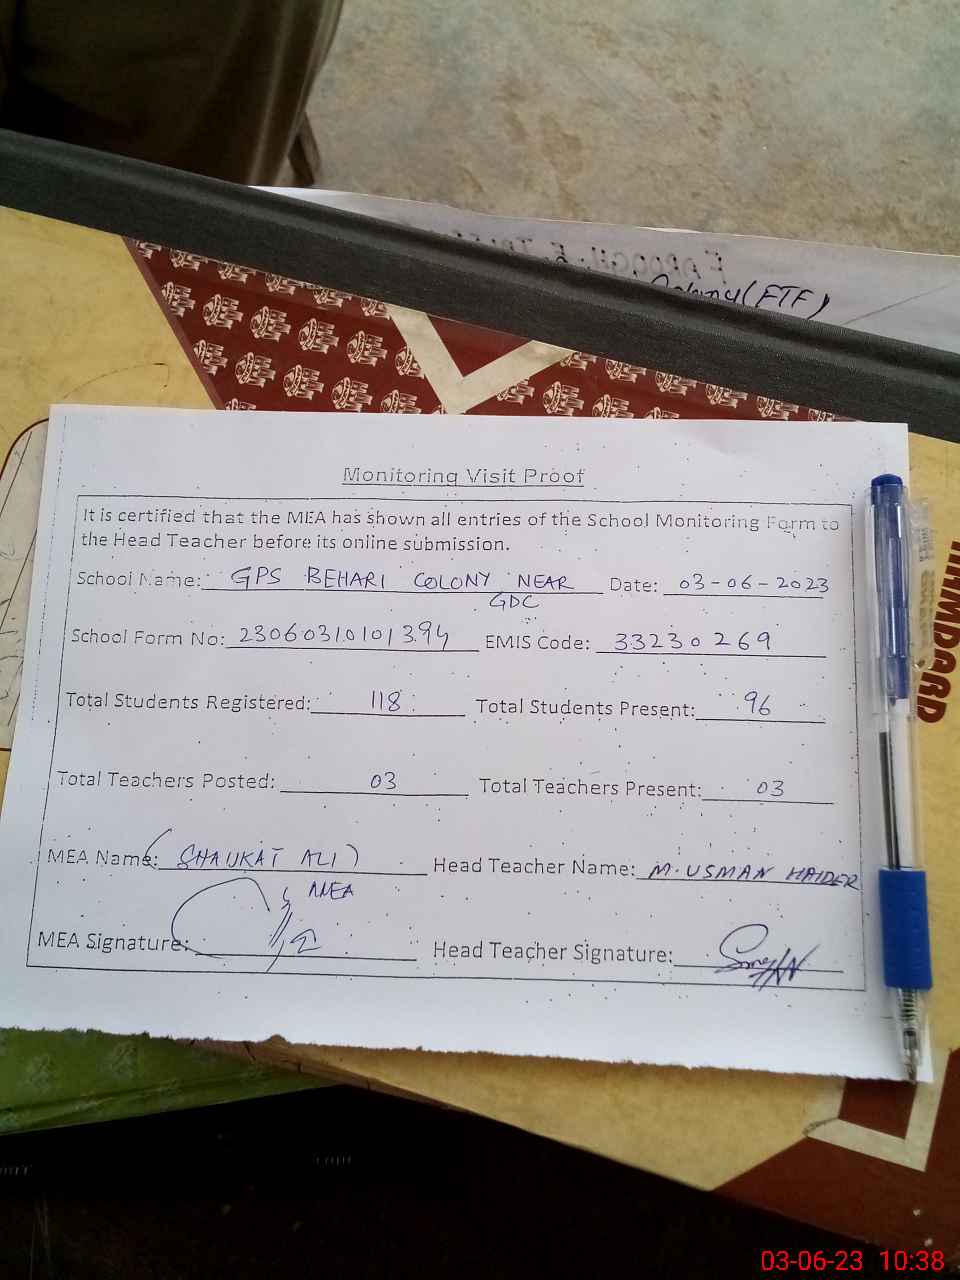 Colony (FTF)
Monitoring Visit Proof
It is certified that the MEA has shown all entries of the School Monitoring Form to
the Head Teacher before its online submission.
School Name: GPS BEHARI COLONY NEAR Date: 03-06-2023
GDC
School Form No: 23060310101394 EMIS Code: 33230269
Total Students Registered: 118 Total Students Present: 96
Total Teachers Posted: 03 Total Teachers Present: 03
MEA Name: (SHAUKAT ALI) Head Teacher Name: M. USMAN HAIDER
MEA
MEA Signature: Head Teacher Signature:
03-06-23 10:38